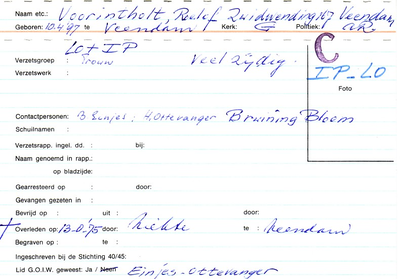 Naam etc.: Voorintholt, Roelef Zuidwending 167 Veendam
Geboren: 10.4.'97 te Veendam Kerk: G Politiek: A.R.
LO + IP
Verzetsgroep : Trouw Veelzijdig.
Verzetswerk :
C
IP_LO
Foto
Contactpersonen: B Eunjes; H. Ottevanger Bruining Bloem
Schuilnaam :
Verzetsrapp. ingel. dd. : bij:
Naam genoemd in rapp.:
op bladzijde:
Gearresteerd op : door:
Gevangen gezeten in :
Bevrijd op : uit : door:
† Overleden op : door: Ziekte te : Veendam
Begraven op : te :
Ingeschreven bij de Stichting 40/45:
Lid G.O.I.W. geweest: Ja / Neen Einjes-Ottevanger